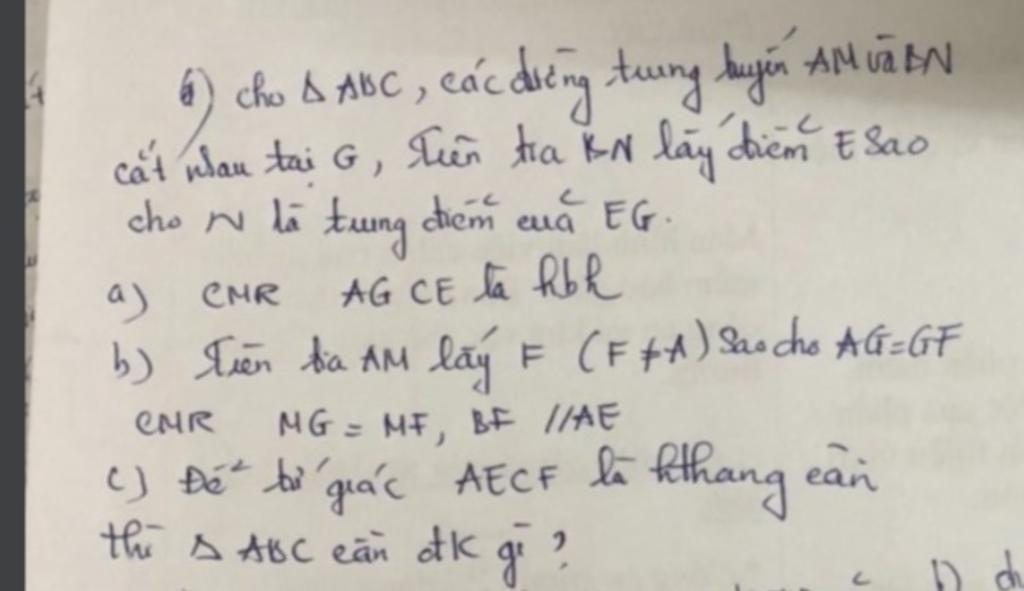 6) cho Δ ABC, các đường trung tuyến AM và BN
cắt nhau tại G, Trên tia BN lấy điểm E sao
cho N là trung điểm của EG.
a) CMR AGCE là hbh
b) Trên tia AM lấy F (F ≠ A) sao cho AG = GF
CMR MG = MF, BF // AE
c) Để tứ giác AECF là hthang cân
thì Δ ABC cần đk gì ?